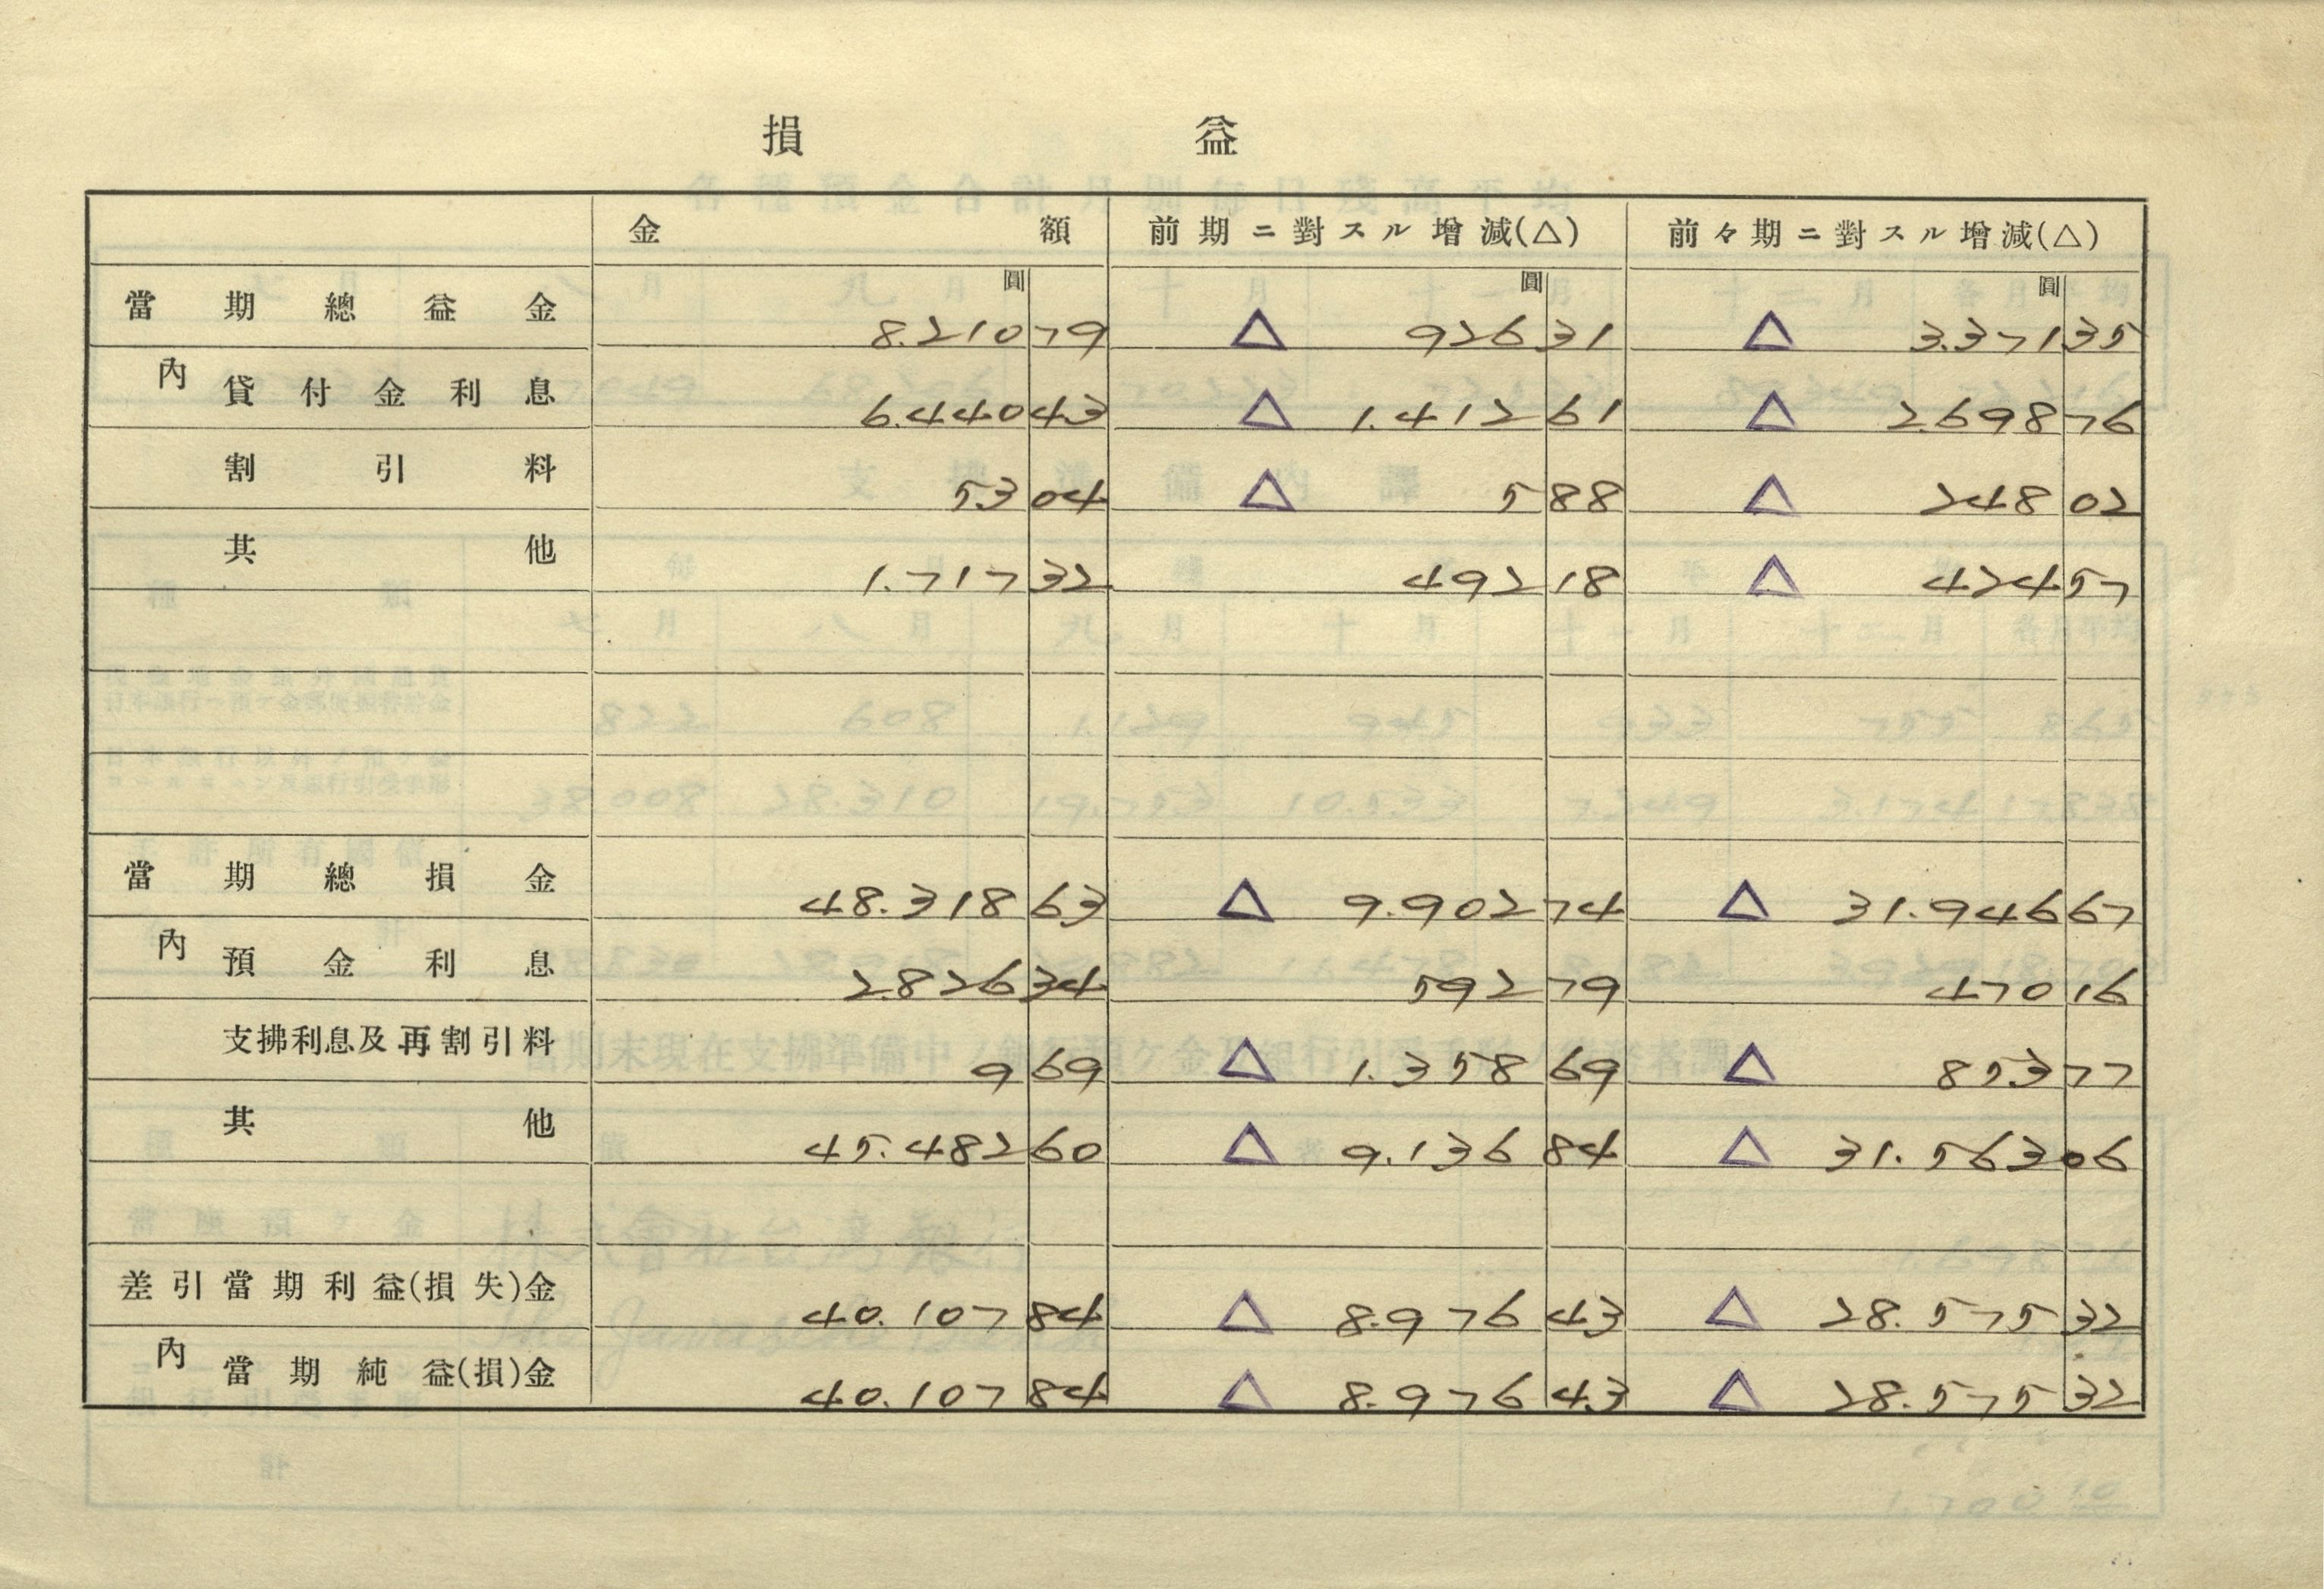 損益
金額 前期ニ對スル增減(△) 前々期ニ對スル增減(△)
圓 圓 圓
當期總益金 8.210 79 △ 926 31 △ 3.371 35
內 貸付金利息 6.440 43 △ 1.412 61 △ 2.698 76
割引料 53 04 △ 5 88 △ 248 02
其他 1.717 32 492 18 △ 424 57
當期總損金 48.318 63 △ 9.902 74 △ 31.946 67
內 預金利息 2.826 34 592 79 470 16
支拂利息及再割引料 9 69 △ 1.358 69 △ 853 77
其他 45.482 60 △ 9.136 84 △ 31.563 06
差引當期利益(損失)金 40.107 84 △ 8.976 43 △ 28.575 32
內 當期純益(損)金 40.107 84 △ 8.976 43 △ 28.575 32